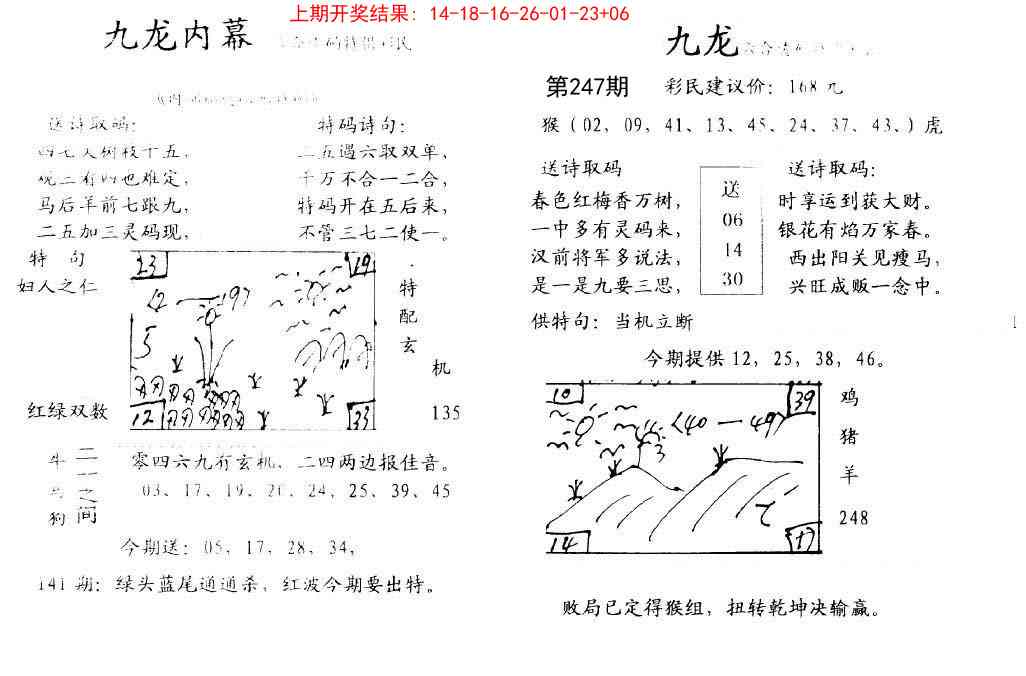 上期开奖结果：14-18-16-26-01-23+06
九龙内幕
送诗取码：
特码诗句：
二五遇六取双单，
千万不合一二合，
马后羊前七跟九，
特码开在五后来，
二五加三灵码现，
不管三七二使一。
特 句
妇人之仁
23
19
12
33
特
配
玄
机
红绿双数
135
牛
马
狗
二
一
之
间
零四六九有玄机，二四两边报佳音。
03、17、19、20、24、25、39、45
今期送：05，17，28，34，
141 期：绿头蓝尾通通杀，红波今期要出特。
九龙
第247期
彩民建议价：168 元
猴（02、09、41、13、45、24、37、43、）虎
送诗取码
春色红梅香万树，
一中多有灵码来，
汉前将军多说法，
是一是九要三思，
送
06
14
30
送诗取码：
时享运到获大财。
银花有焰万家春。
西出阳关见瘦马，
兴旺成贩一念中。
供特句：当机立断
今期提供 12，25，38，46。
10
39
〈40—49〉
14
17
鸡
猪
羊
248
败局已定得猴组，扭转乾坤决输赢。